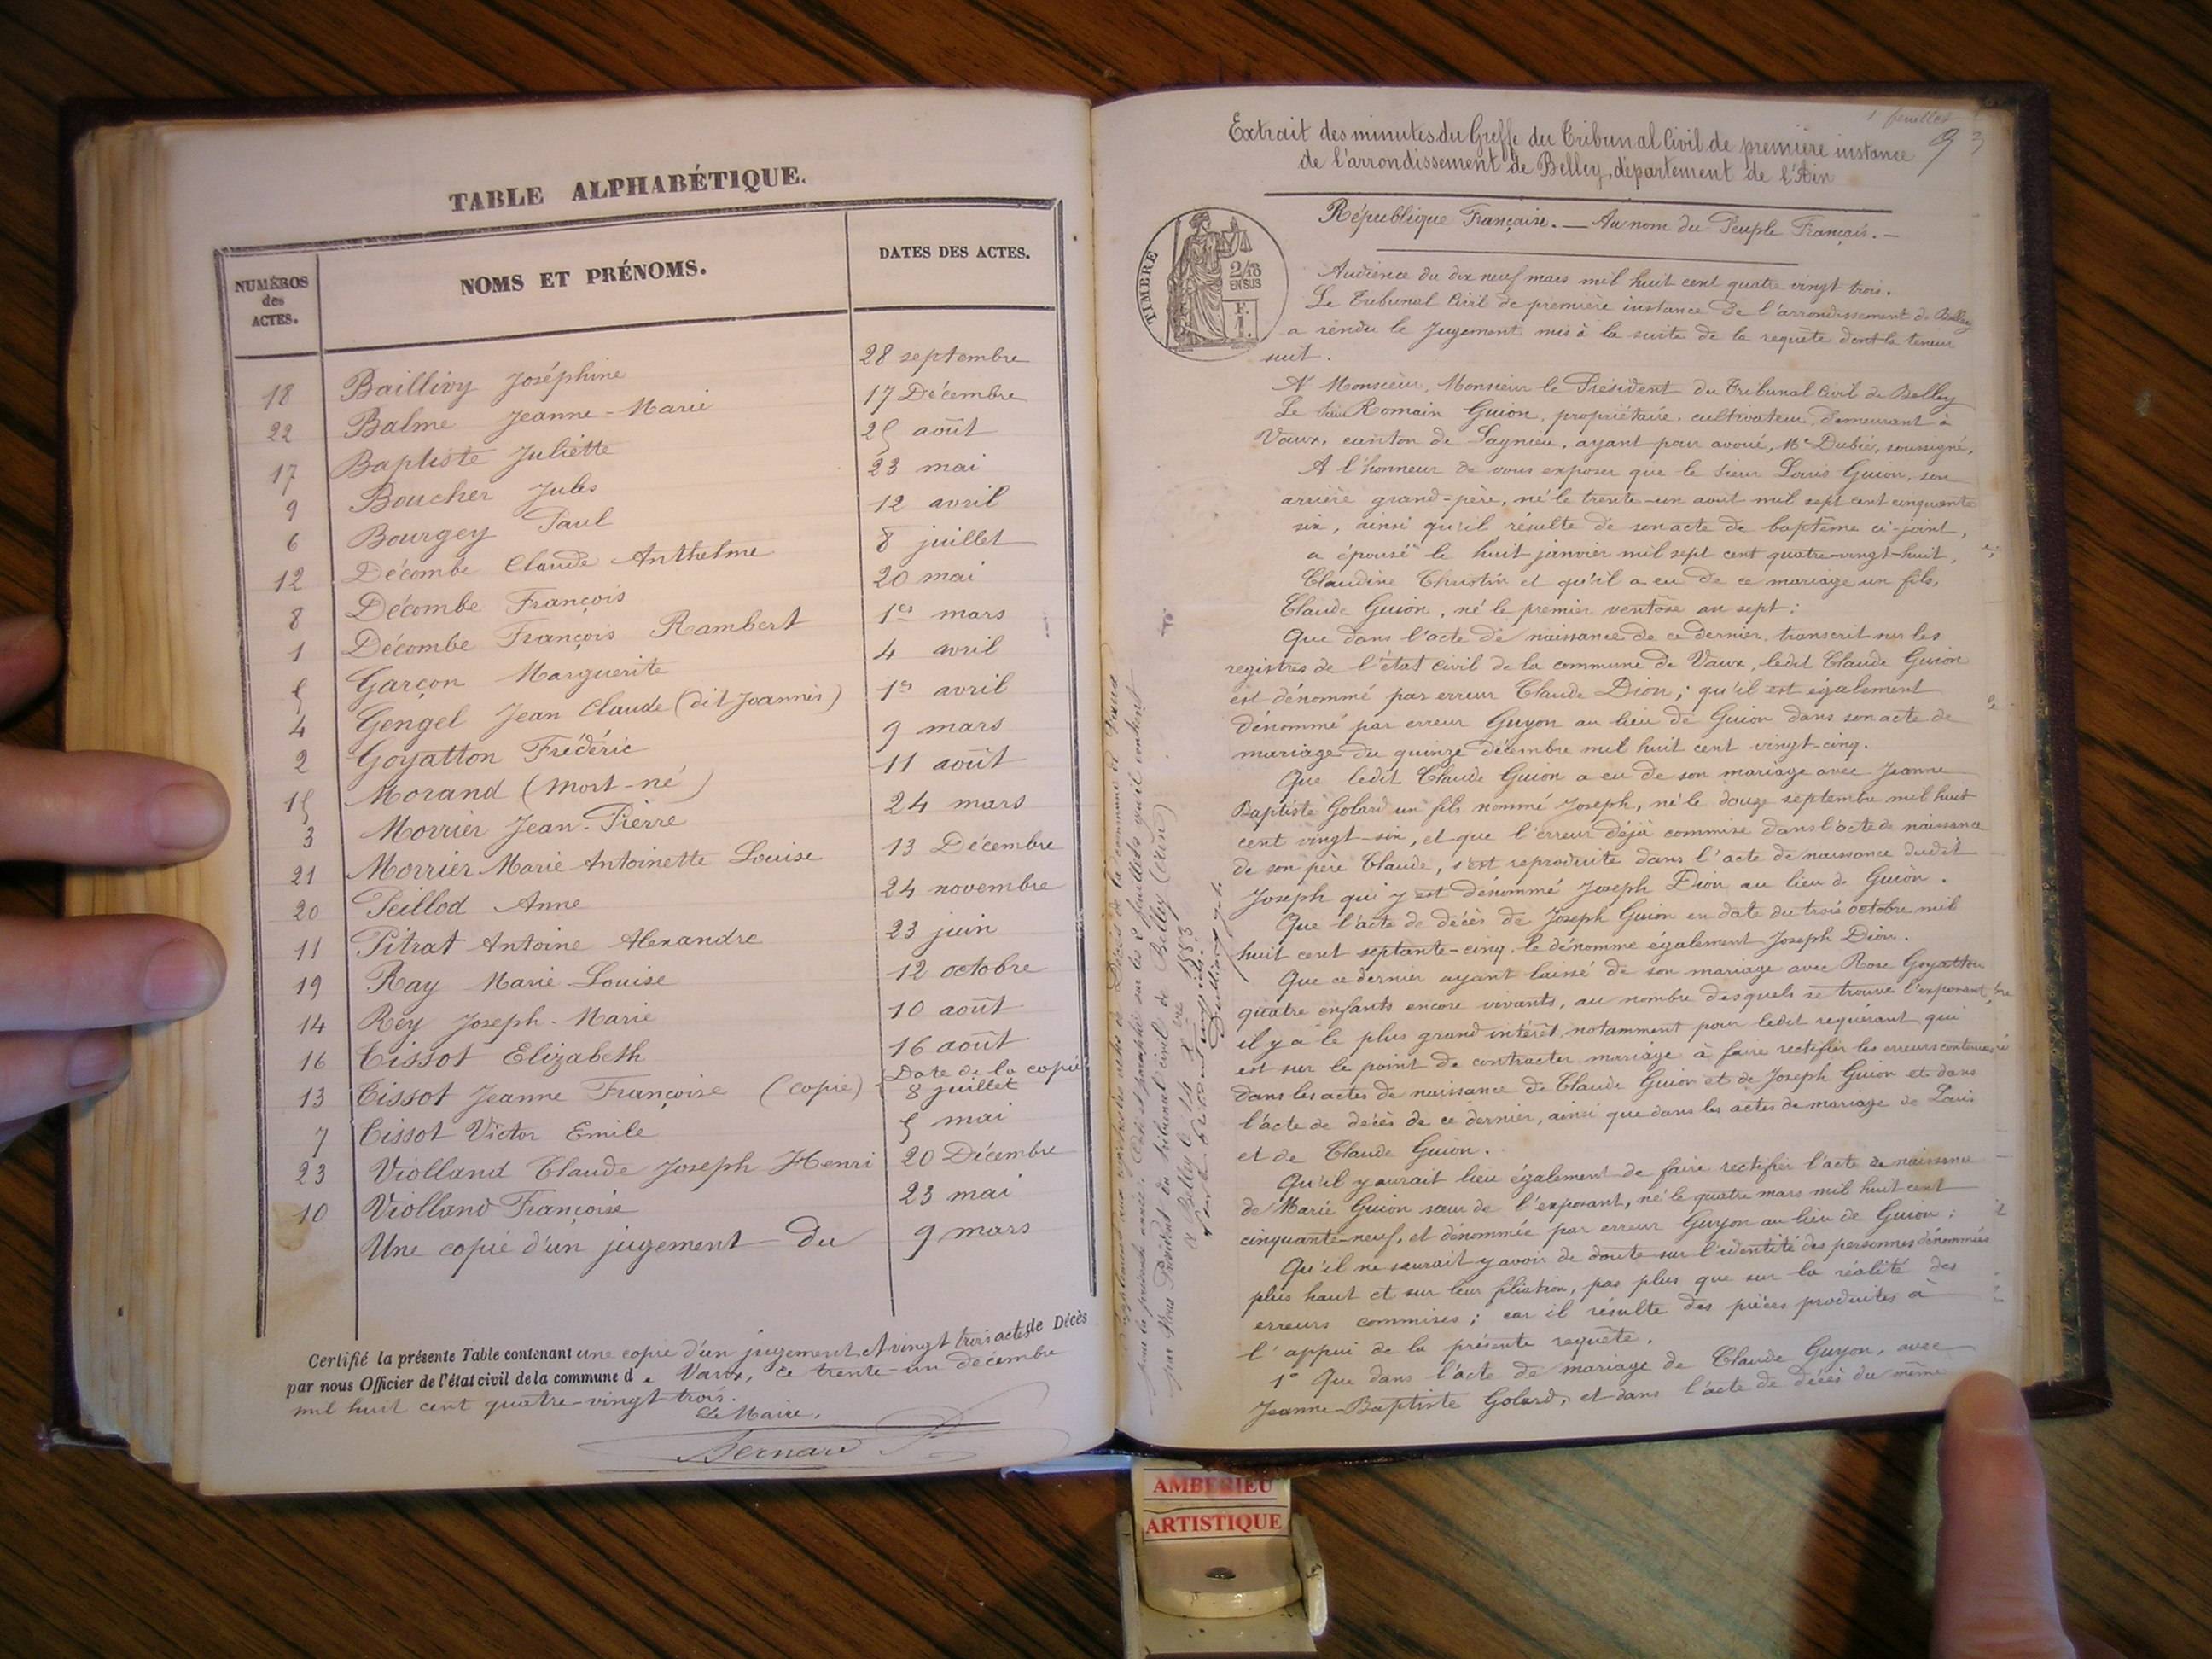 TABLE ALPHABÉTIQUE.
NUMÉROS
des
ACTES.
NOMS ET PRÉNOMS.
DATES DES ACTES.
18 Baillivy Joséphine 28 septembre
22 Balme Jeanne-Marie 17 Décembre
17 Baptiste Juliette 25 août
9 Boucher Jules 23 mai
6 Bourgey Paul 12 avril
12 Décombe Claude Anthelme 8 juillet
8 Décombe François 20 mai
1 Décombe François Rambert 1er mars
5 Garçon Marguerite 4 avril
4 Gengel Jean Claude (dit Joannès) 1er avril
2 Goyatton Frédéric 9 mars
15 Morand (mort-né) 11 août
3 Morrier Jean-Pierre 24 mars
21 Morrier Marie Antoinette Louise 13 Décembre
20 Peillod Anne 24 novembre
11 Pitrat Antoine Alexandre 23 juin
19 Ray Marie Louise 12 octobre
14 Rey Joseph-Marie 10 août
16 Tissot Elizabeth 16 août
13 Tissot Jeanne Françoise (copie) Date de la copie 8 juillet
7 Tissot Victor Emile 5 mai
23 Violland Claude Joseph Henri 20 Décembre
10 Violland Françoise 23 mai
Une copie d'un jugement du 9 mars
Certifié la présente Table contenant une copie d'un jugement et vingt trois actes de Décès
par nous Officier de l'état civil de la commune de Vaux, ce trente-un decembre
mil huit cent quatre-vingt trois.
Le Maire,
Bernard
1 feuillet
Extrait des minutes du Greffe du Tribunal Civil de première instance
de l'arrondissement de Belley, département de l'Ain
République Française. — Au nom du Peuple Français. —
TIMBRE
2/10
EN SUS
F.
1.
Audience du dix neuf mars mil huit cent quatre vingt trois.
Le Tribunal Civil de première instance de l'arrondissement de Belley
a rendu le Jugement mis à la suite de la requête dont la teneur
suit.
A Monsieur, Monsieur le Président du Tribunal Civil de Belley
Le sieur Romain Guion, propriétaire, cultivateur, demeurant à
Vaux, canton de Lagnieu, ayant pour avoué, Me Dubié, soussigné,
A l'honneur de vous exposer que le sieur Louis Guion, son
arrière grand-père, né le trente-un août mil sept cent cinquante
six, ainsi qu'il résulte de son acte de baptême ci-joint,
a épousé le huit janvier mil sept cent quatre-vingt-huit,
Claudine Christin et qu'il a eu de ce mariage un fils,
Claude Guion, né le premier ventôse an sept;
Que dans l'acte de naissance de ce dernier, transcrit sur les
registres de l'état civil de la commune de Vaux, ledit Claude Guion
est dénommé par erreur Claude Dion; qu'il est également
dénommé par erreur Guyon au lieu de Guion dans son acte de
mariage du quinze décembre mil huit cent vingt-cinq.
Que ledit Claude Guion a eu de son mariage avec Jeanne
Baptiste Golard un fils nommé Joseph, né le douze septembre mil huit
cent vingt-six, et que l'erreur déjà commise dans l'acte de naissance
de son père Claude, s'est reproduite dans l'acte de naissance dudit
Joseph qui y est dénommé Joseph Dion au lieu de Guion.
Que l'acte de décès de Joseph Guion en date du trois octobre mil
huit cent septante-cinq le dénomme également Joseph Dion.
Que ce dernier ayant laissé de son mariage avec Rose Goyatton
quatre enfants encore vivants, au nombre desquels se trouve l'exposant,
il y a le plus grand intérêt, notamment pour ledit requérant qui
est sur le point de contracter mariage à faire rectifier les erreurs contenues
dans les actes de naissance de Claude Guion et de Joseph Guion et dans
l'acte de décès de ce dernier, ainsi que dans les actes de mariage de Louis
et de Claude Guion.
Qu'il y aurait lieu également de faire rectifier l'acte de naissance
de Marie Guion sœur de l'exposant, né le quatre mars mil huit cent
cinquante-neuf, et dénommée par erreur Guyon au lieu de Guion;
Qu'il ne saurait y avoir de doute sur l'identité des personnes dénommées
plus haut et sur leur filiation, pas plus que sur la réalité des
erreurs commises; car il résulte des pièces produites à
l'appui de la présente requête.
1° Que dans l'acte de mariage de Claude Guyon, avec
Jeanne-Baptiste Golard, et dans l'acte de décès du même
AMBERIEU
ARTISTIQUE